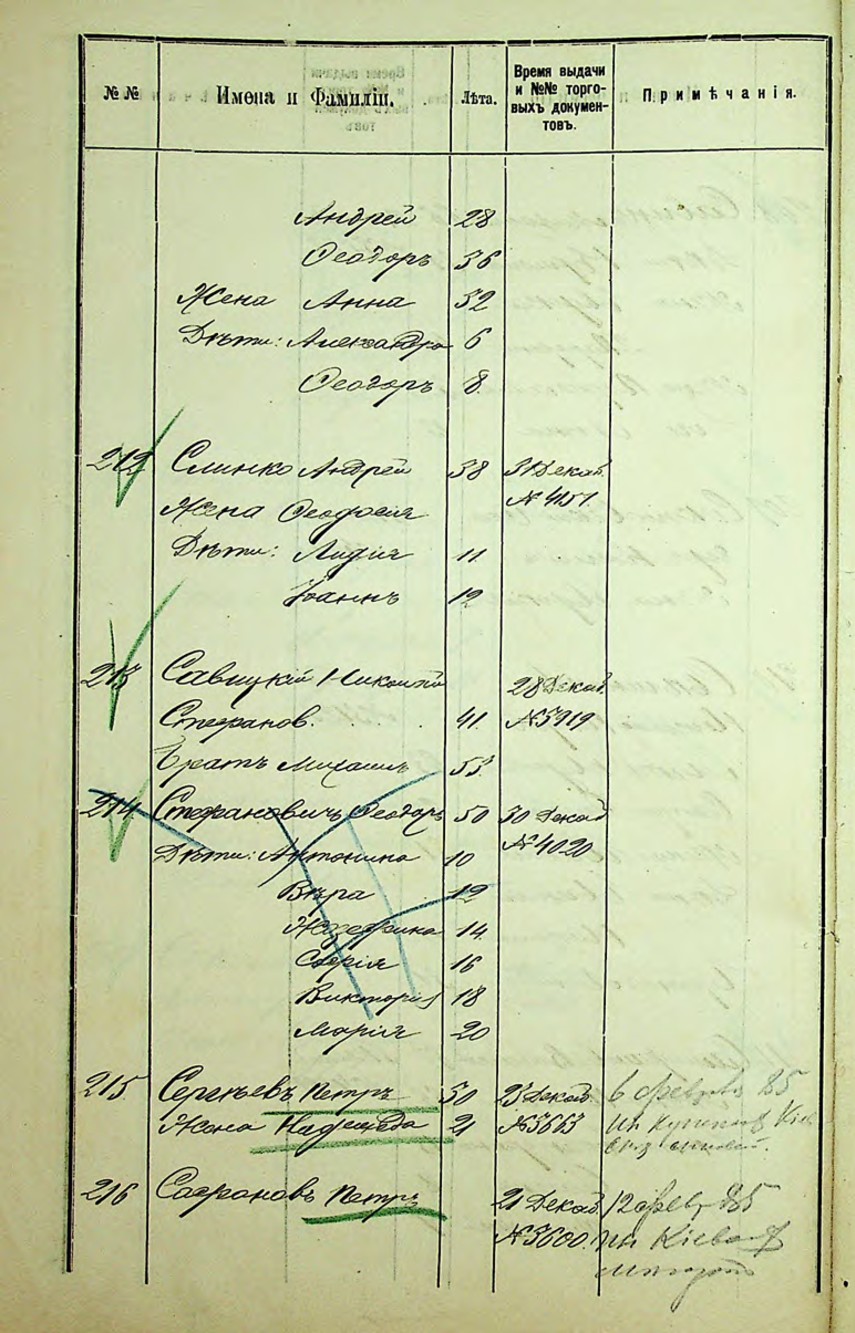 №№ Имена и Фамиліи. Лѣта. Время выдачи и №№ торговыхъ документовъ. Примѣчанія.
Андрей 28
Ѳеодоръ 36
Жена Анна 32
Дѣти: Александра 6
Ѳеодоръ 8.
212 Слинко Андрей 38 31 Декаб.
Жена Ѳеодосія № 4151.
Дѣти: Лидія 11
Іоаннъ 12
213 Савицкій Николай 28 Декаб.
Стефанов. 41. №3919
Братъ Михаилъ 53.
214 Стефановичъ Ѳеодоръ 50 30 Декаб
Дѣти: Антонина 10 №4020
Вѣра 12
Жозефина 14.
Софія 16
Викторія 18
Марія 20
215 Сергѣевъ Петръ 30 23 Декаб. 6 февраля 85
Жена Надежда 21 №3663
216 Сафоновъ Петръ 21 Декаб. 12 февр 885
№3600.